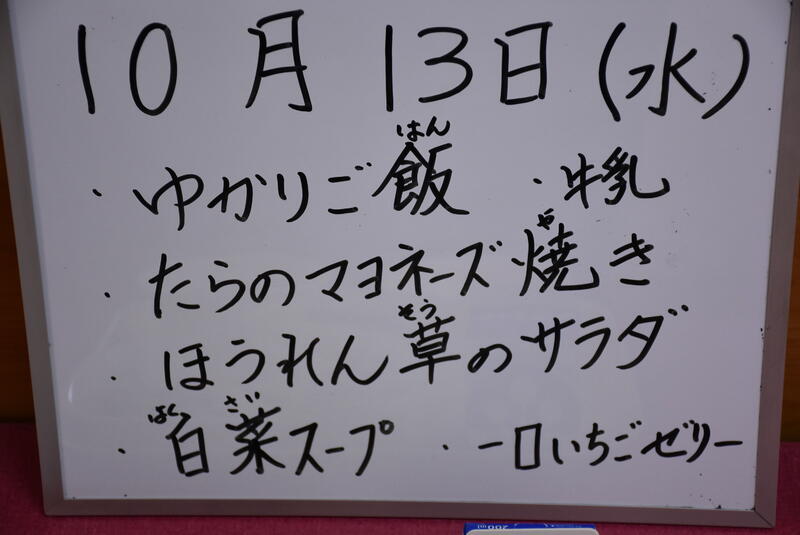 10月13日(水)
・ゆかりご飯 ・牛乳
はん
・たらのマヨネーズ焼き
や
・ほうれん草のサラダ
そう
・白菜スープ ・一口いちごゼリー
はく さい